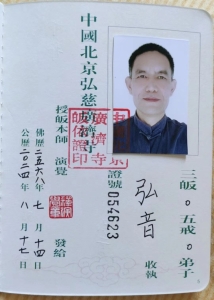 三皈。五戒。弟子
弘音 收執
證號 054623
中國北京弘慈廣濟寺
授皈本師 演覺
佛歷二五六八年七月十四日
公歷二〇二四年八月十七日
發給